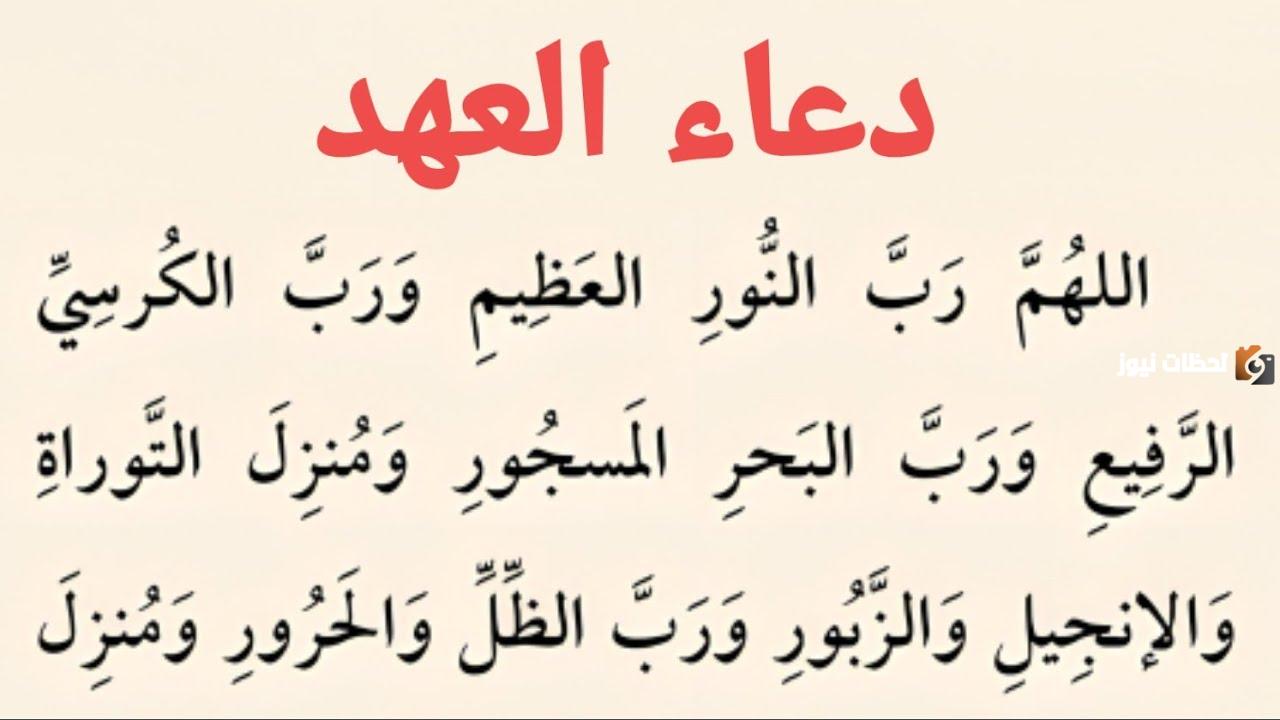 دعاء العهد
اللهُمَّ رَبَّ النُّورِ العَظِيمِ وَرَبَّ الكُرسِيِّ
لحظات نيوز
الرَّفِيعِ وَرَبَّ البَحرِ المَسجُورِ وَمُنزِلَ التَّوراةِ
وَالإنجِيلِ وَالزَّبُورِ وَرَبَّ الظِّلِّ وَالحَرُورِ وَمُنزِلَ